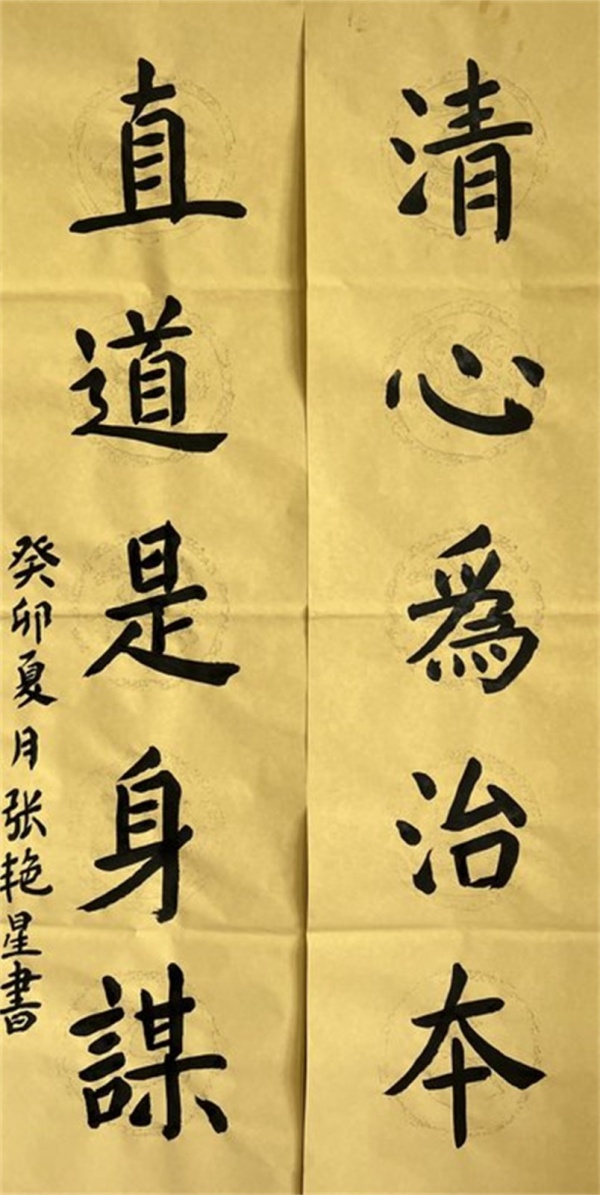 清心爲治本
直道是身謀
癸卯夏月张艳星書